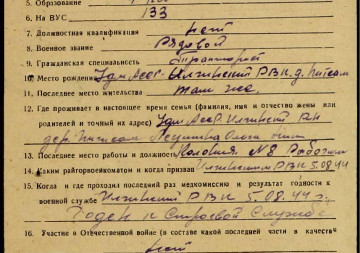 5. Образование
6. На ВУС 133
7. Должностная квалификация нет
8. Военное звание Рядовой
9. Гражданская специальность
10. Место рождения Удм АССР Игринский РВК д.
11. Последнее место жительства там же
12. Где проживает в настоящее время семья (фамилия, имя и отчество жены или
родителей и точный их адрес) Удм АССР Игринский
дер.
13. Последнее место работы и должность Колония №8 Рабочий
14. Каким райгорвоенкоматом и когда призван Игринским РВК 5.08.44
15. Когда и где проходил последний раз медкомиссию и результат годности к
военной службе Игринский РВК 5.08.44
Годен к Строевой Службе
16. Участие в Отечественной войне (в составе какой последней части в качест
нет